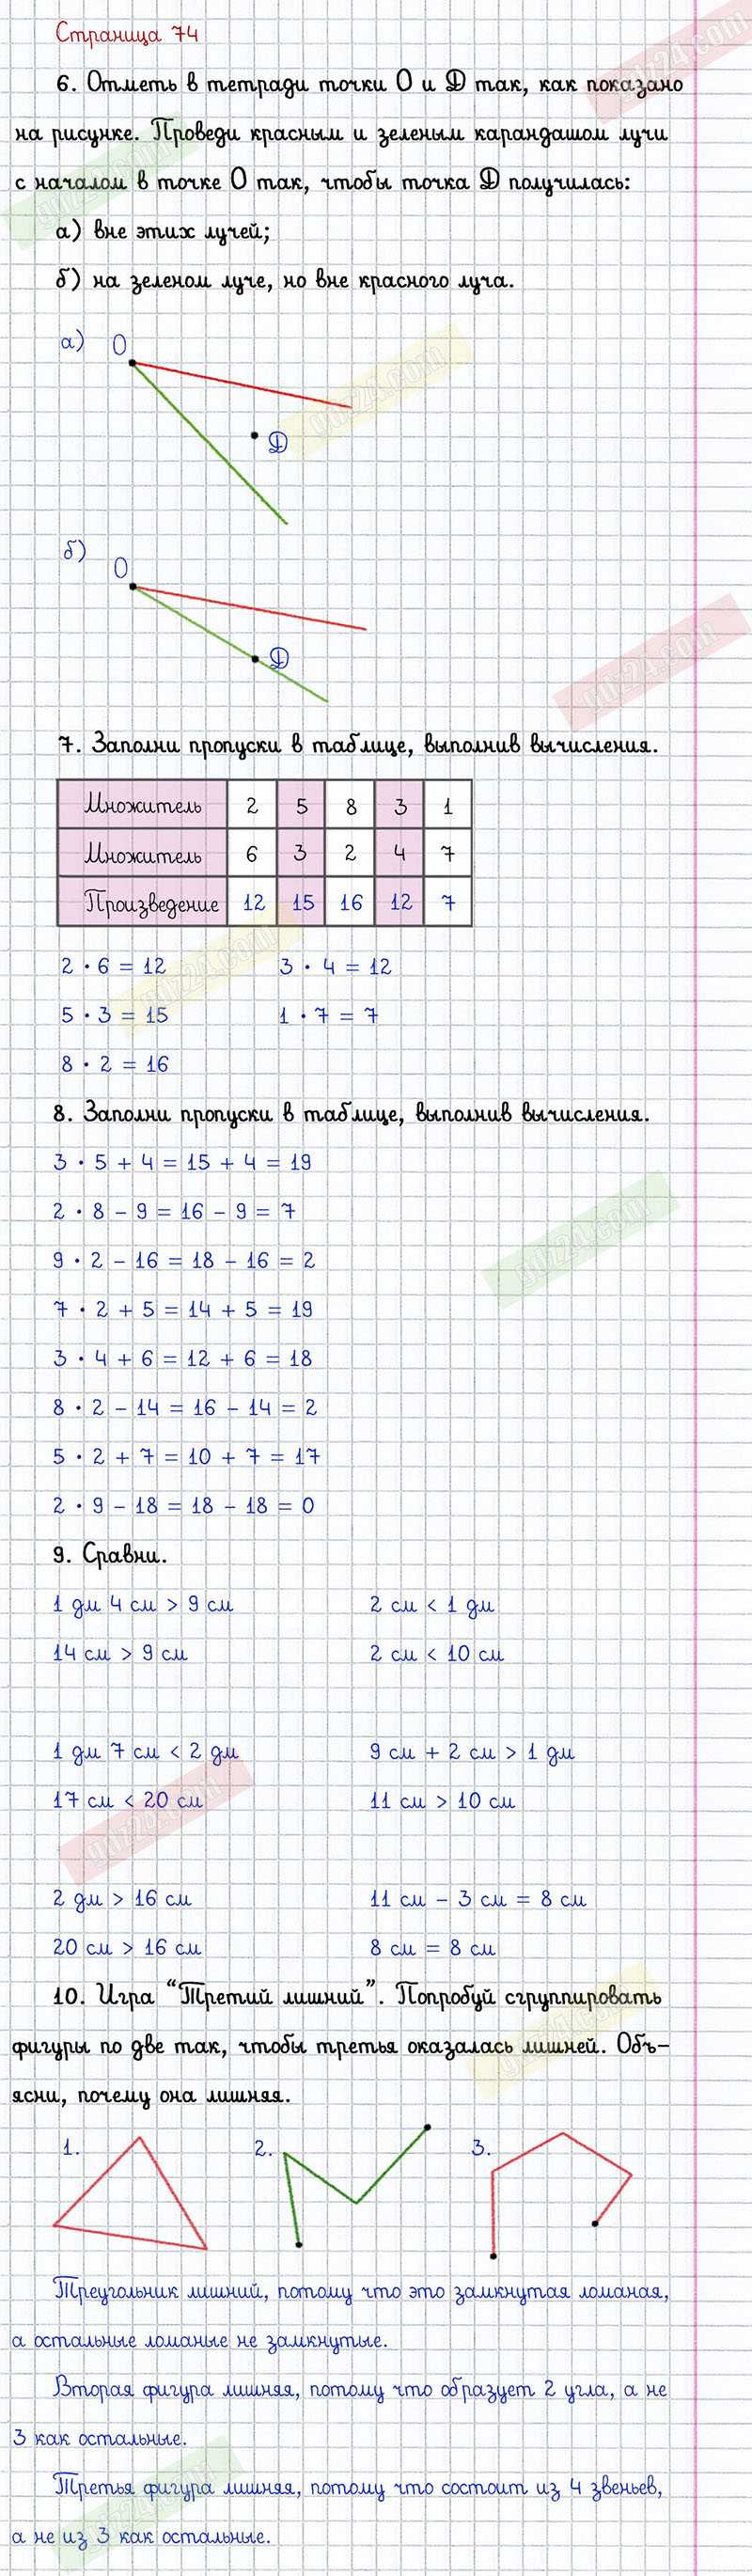 Страница 74
6. Отметь в тетради точки О и Д так, как показано
на рисунке. Проведи красным и зеленым карандашом лучи
с началом в точке О так, чтобы точка Д получилась:
а) вне этих лучей;
б) на зеленом луче, но вне красного луча.
а) О
Д
б)
О
Д
7. Заполни пропуски в таблице, выполнив вычисления.
Множитель 2 5 8 3 1
Множитель 6 3 2 4 7
Произведение 12 15 16 12 7
2 · 6 = 12 3 · 4 = 12
5 · 3 = 15 1 · 7 = 7
8 · 2 = 16
8. Заполни пропуски в таблице, выполнив вычисления.
3 · 5 + 4 = 15 + 4 = 19
2 · 8 - 9 = 16 - 9 = 7
9 · 2 - 16 = 18 - 16 = 2
7 · 2 + 5 = 14 + 5 = 19
3 · 4 + 6 = 12 + 6 = 18
8 · 2 - 14 = 16 - 14 = 2
5 · 2 + 7 = 10 + 7 = 17
2 · 9 - 18 = 18 - 18 = 0
9. Сравни.
1 дм 4 см > 9 см 2 см < 1 дм
14 см > 9 см 2 см < 10 см
1 дм 7 см < 2 дм 9 см + 2 см > 1 дм
17 см < 20 см 11 см > 10 см
2 дм > 16 см 11 см - 3 см = 8 см
20 см > 16 см 8 см = 8 см
10. Игра “Третий лишний”. Попробуй сгруппировать
фигуры по две так, чтобы третья оказалась лишней. Объ-
ясни, почему она лишняя.
1. 2. 3.
Треугольник лишний, потому что это замкнутая ломаная,
а остальные ломаные не замкнутые.
Вторая фигура лишняя, потому что образует 2 угла, а не
3 как остальные.
Третья фигура лишняя, потому что состоит из 4 звеньев,
а не из 3 как остальные.